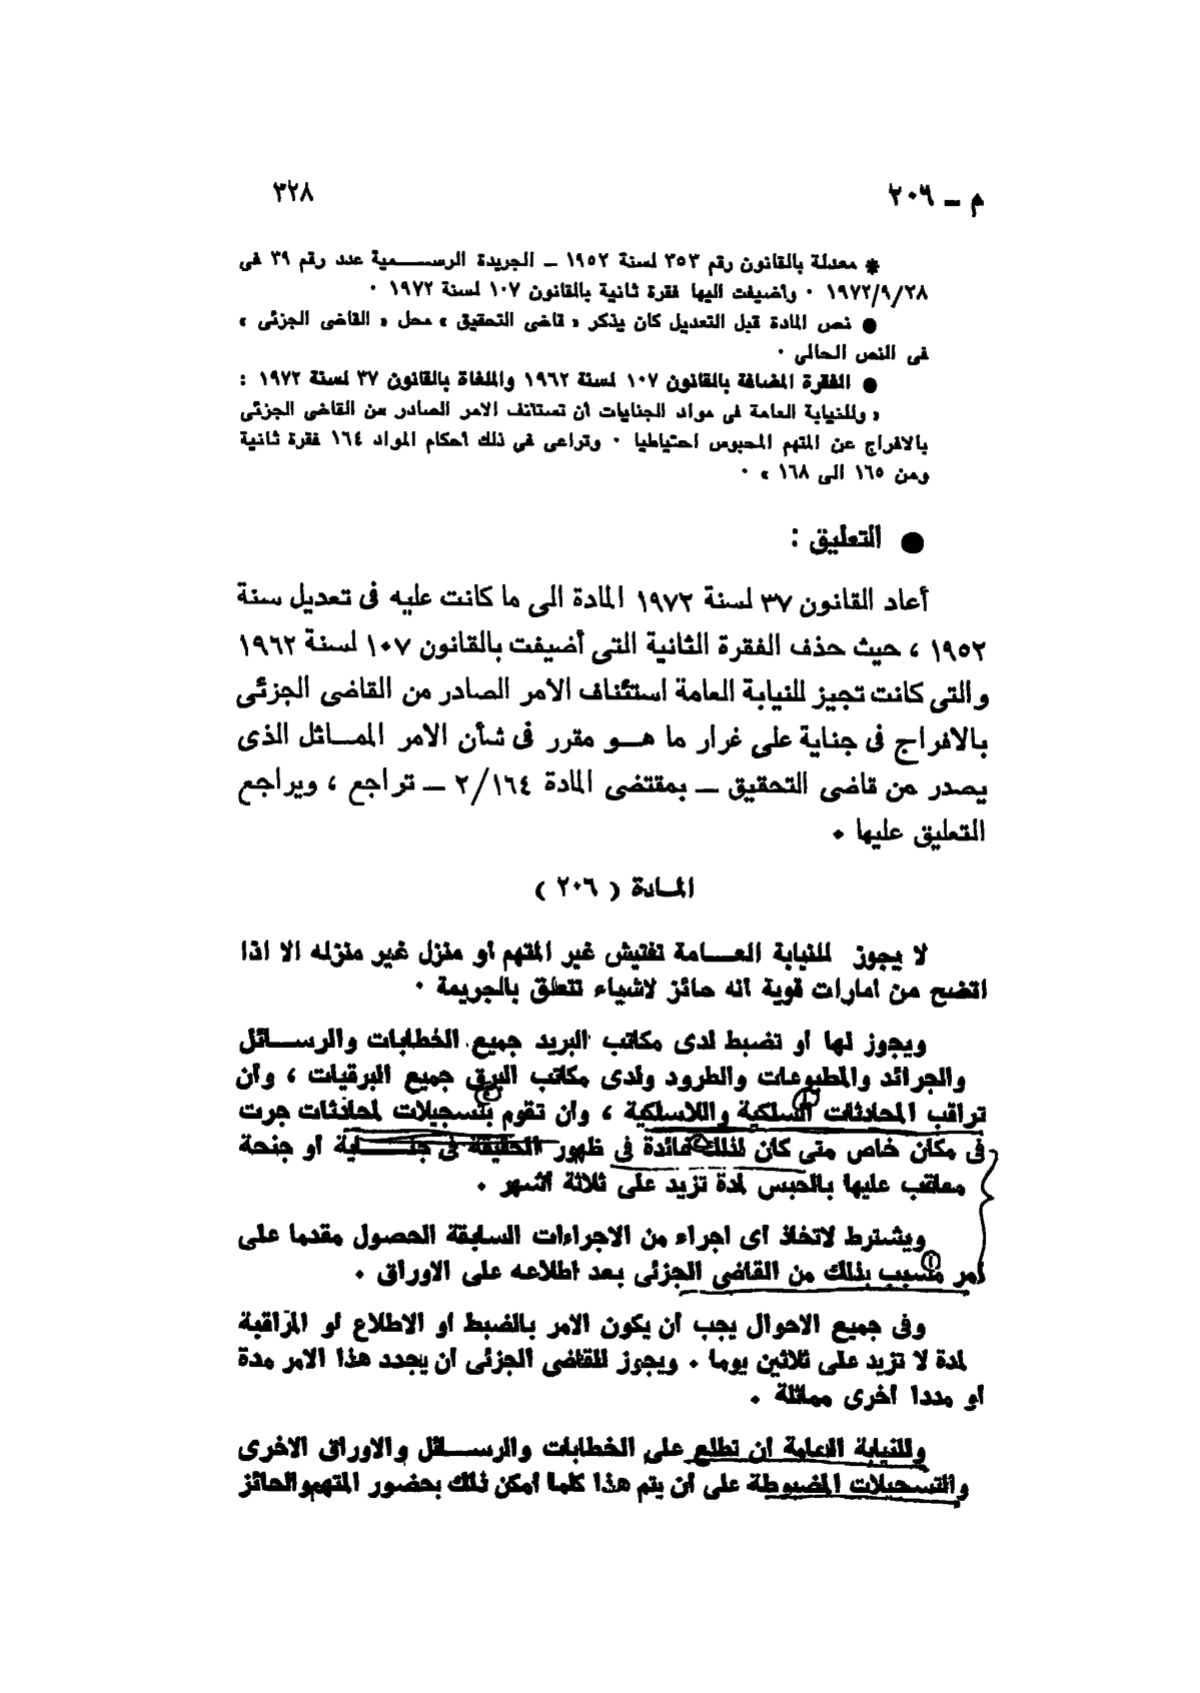 م – ٢٠٦
٣٢٨
* معدلة بالقانون رقم ٣٥٣ لسنة ١٩٥٢ – الجريدة الرســـمية عدد رقم ٣٩ فى
١٩٧٢/٩/٢٨ ٠ وأضيفت اليها فقرة ثانية بالقانون ١٠٧ لسنة ١٩٧٢ ٠
● نص المادة قبل التعديل كان يذكر « قاضى التحقيق » محل « القاضى الجزئى »
فى النص الحالى ٠
● الفقرة المضافة بالقانون ١٠٧ لسنة ١٩٦٢ والملغاة بالقانون ٣٧ لسنة ١٩٧٢ :
« وللنيابة العامة فى مواد الجنايات أن تستأنف الامر الصادر من القاضى الجزئى
بالافراج عن المتهم المحبوس احتياطيا ٠ وتراعى فى ذلك أحكام المواد ١٦٤ فقرة ثانية
ومن ١٦٥ الى ١٦٨ » ٠
● التعليق :
أعاد القانون ٣٧ لسنة ١٩٧٢ المادة الى ما كانت عليه فى تعديل سنة
١٩٥٢ ، حيث حذف الفقرة الثانية التى أضيفت بالقانون ١٠٧ لسنة ١٩٦٢
والتى كانت تجيز للنيابة العامة استئناف الامر الصادر من القاضى الجزئى
بالافراج فى جناية على غرار ما هــو مقرر فى شأن الامر المــاثل الذى
يصدر من قاضى التحقيق – بمقتضى المادة ٢/١٦٤ – تراجع ، ويراجع
التعليق عليها ٠
المــادة ( ٢٠٦ )
لا يجوز للنيابة العــامة تفتيش غير المتهم أو منزل غير منزله الا اذا
اتضح من امارات قوية أنه حائز لاشياء تتعلق بالجريمة ٠
ويجوز لها أو تضبط لدى مكاتب البريد جميع الخطابات والرســائل
والجرائد والمطبوعات والطرود ولدى مكاتب البرق جميع البرقيات ، وأن
تراقب المحادثات السلكية واللاسلكية ، وأن تقوم بتسجيلات لمحادثات جرت
فى مكان خاص متى كان لذلك فائدة فى ظهور الحقيقة فى جنــاية أو جنحة
معاقب عليها بالحبس لمدة تزيد على ثلاثة أشهر ٠
ويشترط لاتخاذ أى اجراء من الاجراءات السابقة الحصول مقدما على
أمر مسبب بذلك من القاضى الجزئى بعد اطلاعه على الاوراق ٠
وفى جميع الاحوال يجب أن يكون الامر بالضبط أو الاطلاع أو المراقبة
لمدة لا تزيد على ثلاثين يوما ٠ ويجوز للقاضى الجزئى أن يجدد هذا الامر مدة
أو مددا أخرى مماثلة ٠
وللنيابة العامة أن تطلع على الخطابات والرســائل والاوراق الاخرى
والتسجيلات المضبوطة على أن يتم هذا كلما أمكن ذلك بحضور المتهم والحائز